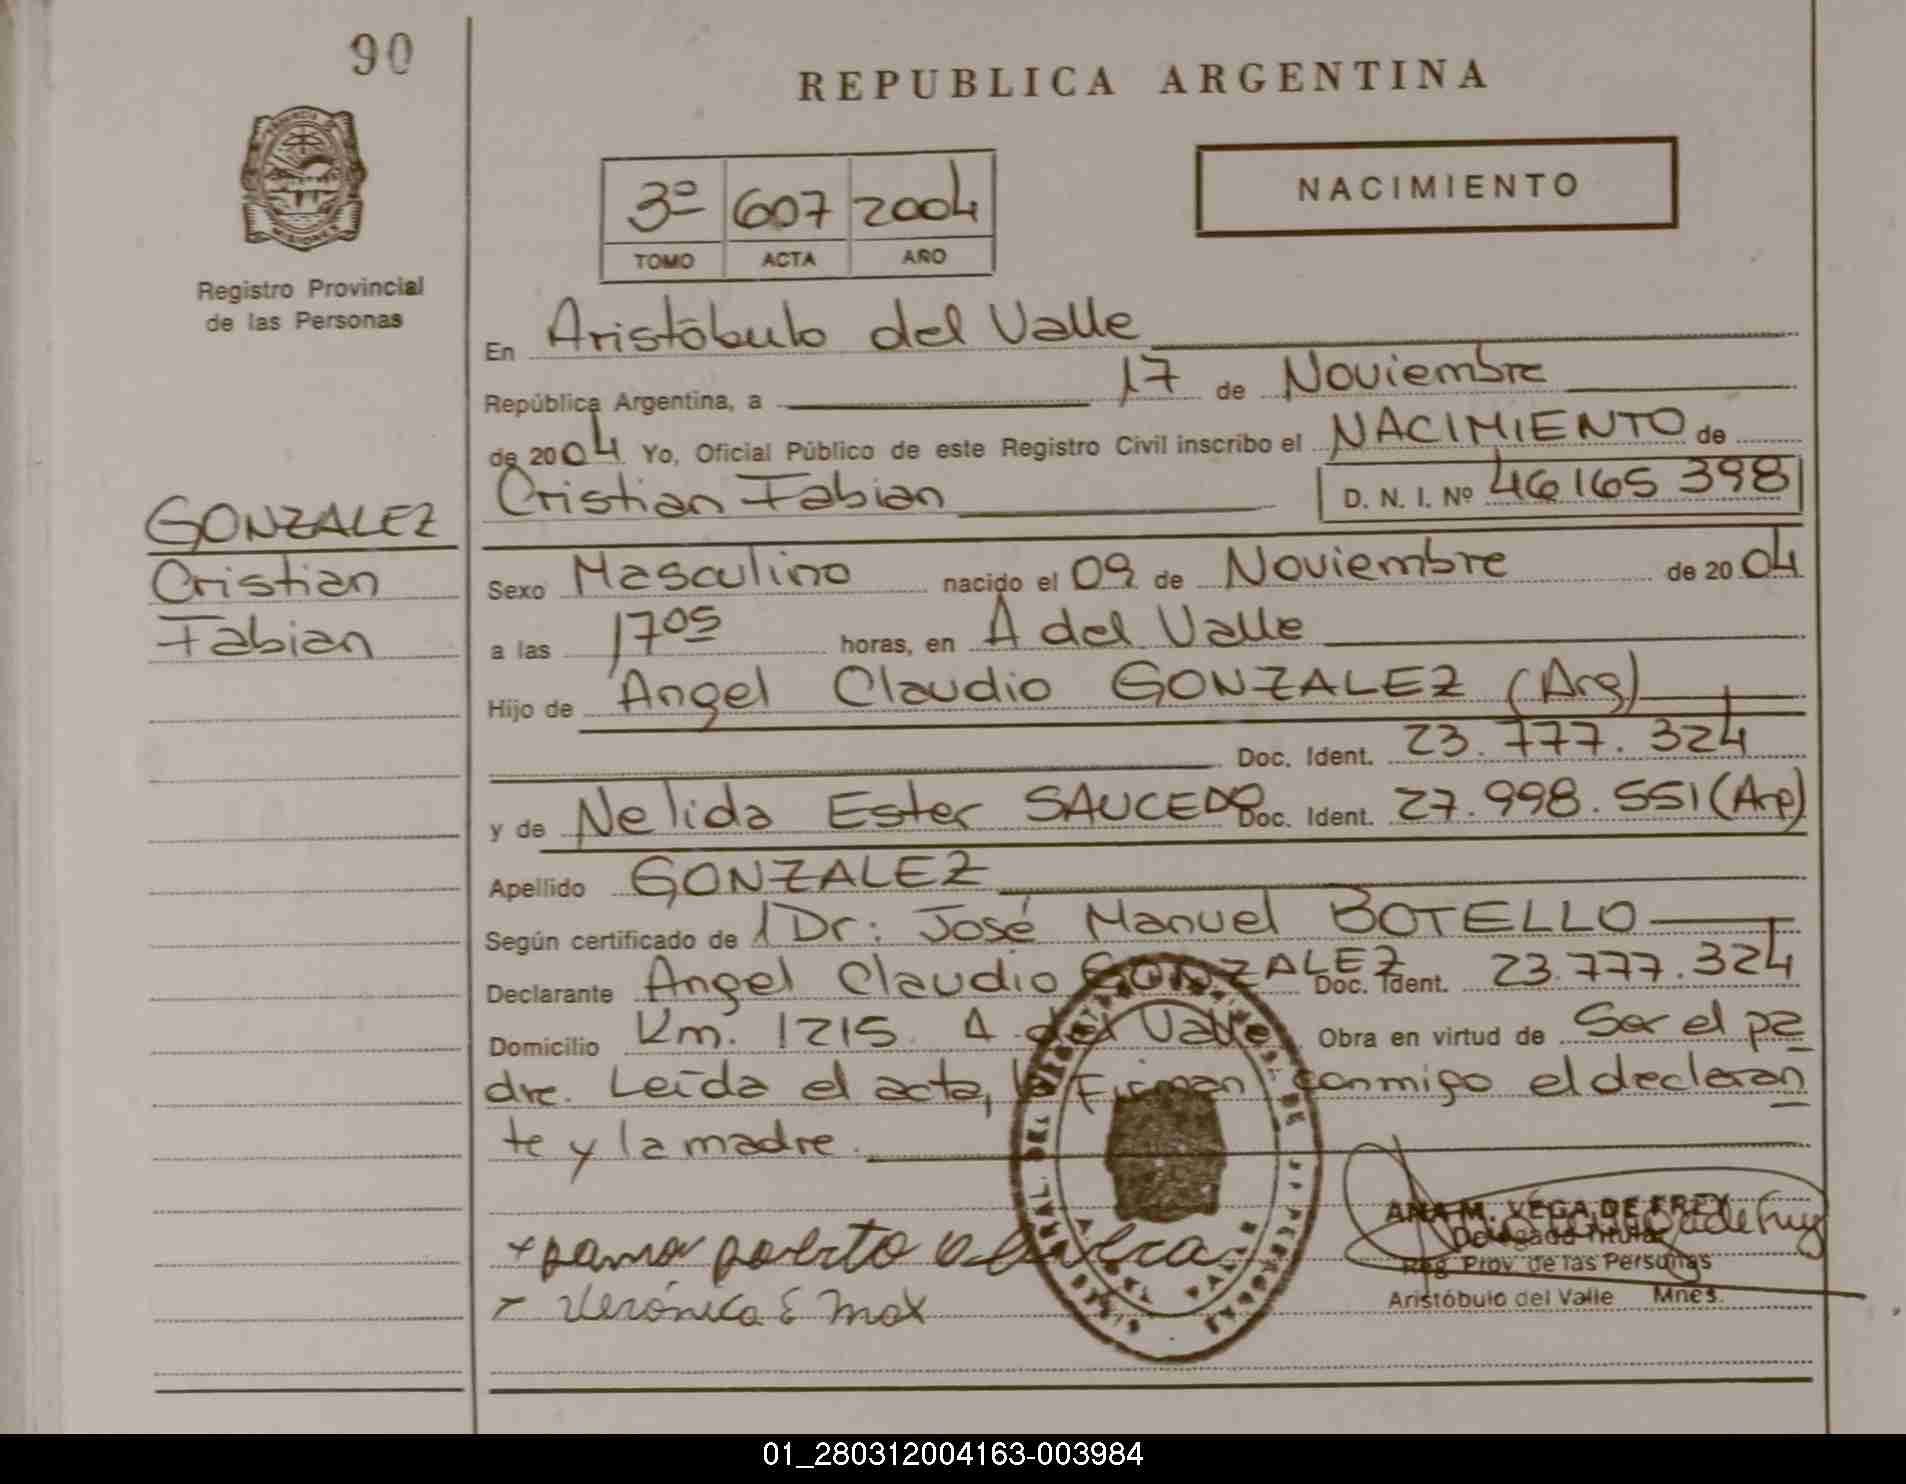 90
REPUBLICA ARGENTINA
NACIMIENTO
3º 607 2004
TOMO ACTA AÑO
MISIONES
Registro Provincial
de las Personas
En Aristóbulo del Valle
República Argentina, a 17 de Noviembre
de 2004 Yo, Oficial Público de este Registro Civil inscribo el NACIMIENTO de
Cristian Fabian D. N. I. Nº 46165398
GONZALEZ
Cristian
Fabian
Sexo Masculino nacido el 09 de Noviembre de 2004
a las 17 05 horas, en A del Valle
Hijo de Angel Claudio GONZALEZ (Arg)
Doc. Ident. 23.777.324
y de Nelida Ester SAUCEDO Doc. Ident. 27.998.551 (Arg)
Apellido GONZALEZ
Según certificado de Dr: José Manuel BOTELLO
Declarante Angel Claudio GONZALEZ Doc. Ident. 23.777.324
Domicilio Km. 1215 A. del Valle Obra en virtud de Ser el pa
dre. Leída el acta, Firman conmigo el declaran
te y la madre.
ANA M. VEGA DE FREY
Delegada Titular
Reg. Prov. de las Personas
Aristóbulo del Valle Mnes.
01_280312004163-003984